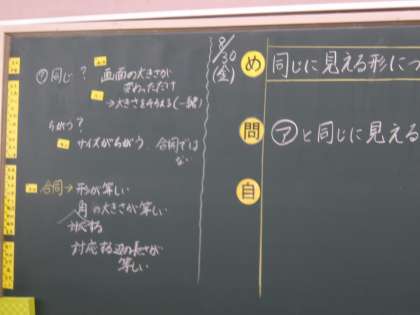 8/30
(金)
め
同じに見える形につ
問
㋐と同じに見える
自
㋐同じ？ 画面の大きさが
変わっただけ
→大きさをそろえる(一緒)
ちがう？
サイズがちがう 合同では
ない
合同→形が等しい
角の大きさが等しい
対応する
対応する辺の長さが
等しい